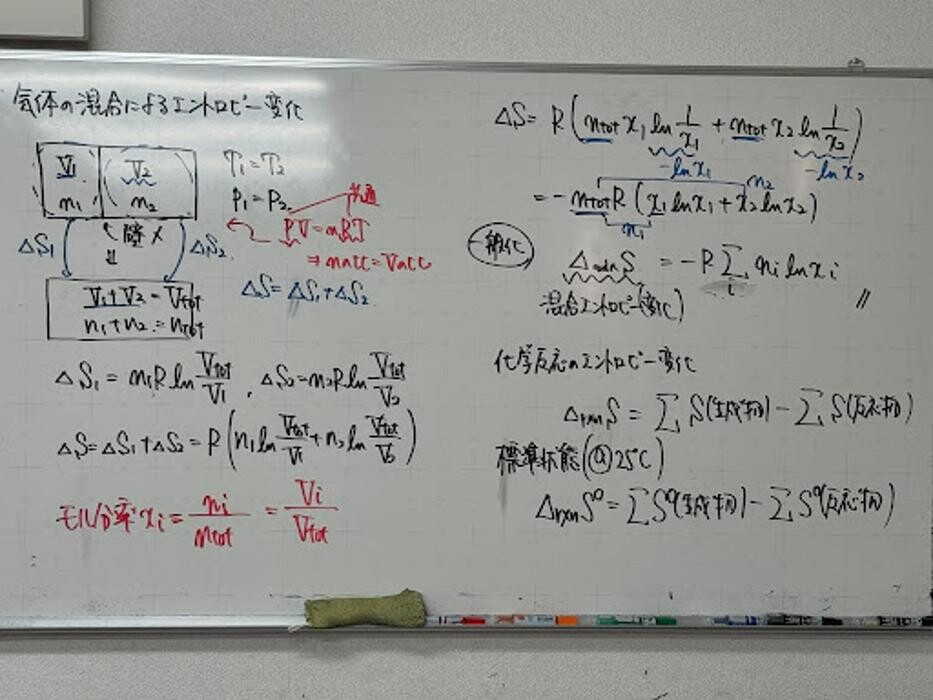 気体の混合によるエントロピー変化
V₁ V₂
n₁ n₂
T₁ = T₂
P₁ = P₂
共通
PV = nRT
⇒ n
ΔS₁ 壁 ✗ ΔS₂
⇓
V₁ + V₂ = Vtot
n₁ + n₂ = ntot
ΔS = ΔS₁ + ΔS₂
ΔS₁ = n₁R ln Vtot/V₁ , ΔS₂ = n₂R ln Vtot/V₂
ΔS = ΔS₁ + ΔS₂ = R(n₁ ln Vtot/V₁ + n₂ ln Vtot/V₂)
モル分率 xi = ni/ntot = Vi/Vtot
ΔS = R(ntot x₁ ln 1/x₁ + ntot x₂ ln 1/x₂)
-ln x₁ -ln x₂
n₂
= - ntot R (x₁ ln x₁ + x₂ ln x₂)
n₁
一般化
ΔmixS = -R Σi ni ln xi
混合エントロピー(変化) //
化学反応のエントロピー変化
ΔrxnS = Σ S(生成物) - Σ S(反応物)
標準状態(@25℃)
ΔrxnS⁰ = Σ S⁰(生成物) - Σ S⁰(反応物)